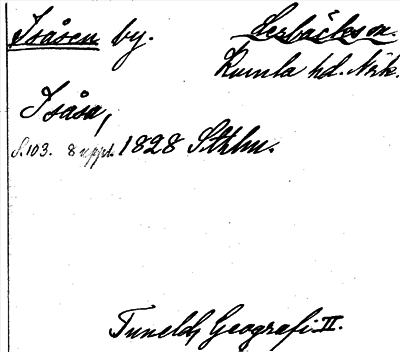 Isåsen by. Lerbäcks sn.
Kumla hd. Närk.
Isåsa,
S. 103. 8 uppl. 1828 Sthlm.
Tuneld, Geografi II.